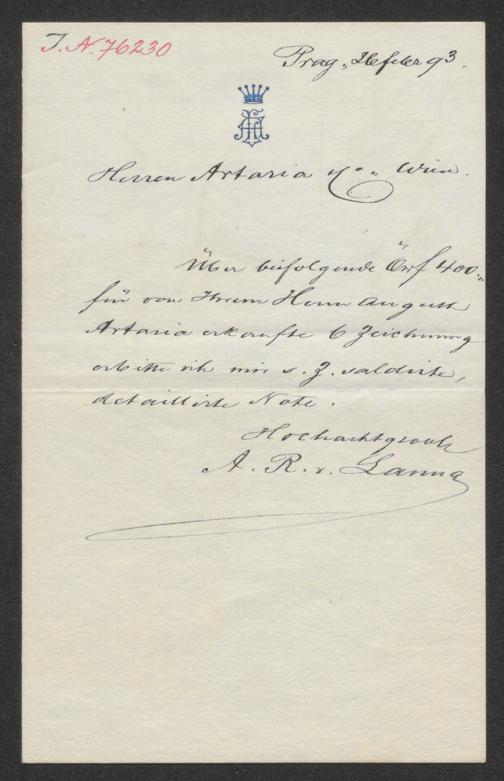 I.N. 76230
Prag, 93.
Herren Artaria & Co. Wien.
Über beifolgende ÖWf 400.-
für von Ihrem Herrn August
Artaria erkaufte 6 Zeichnung
erbitte ich mir s. Z. saldirte,
detaillirte Note.
Hochachtgsvoll
A. R. v. Lanna